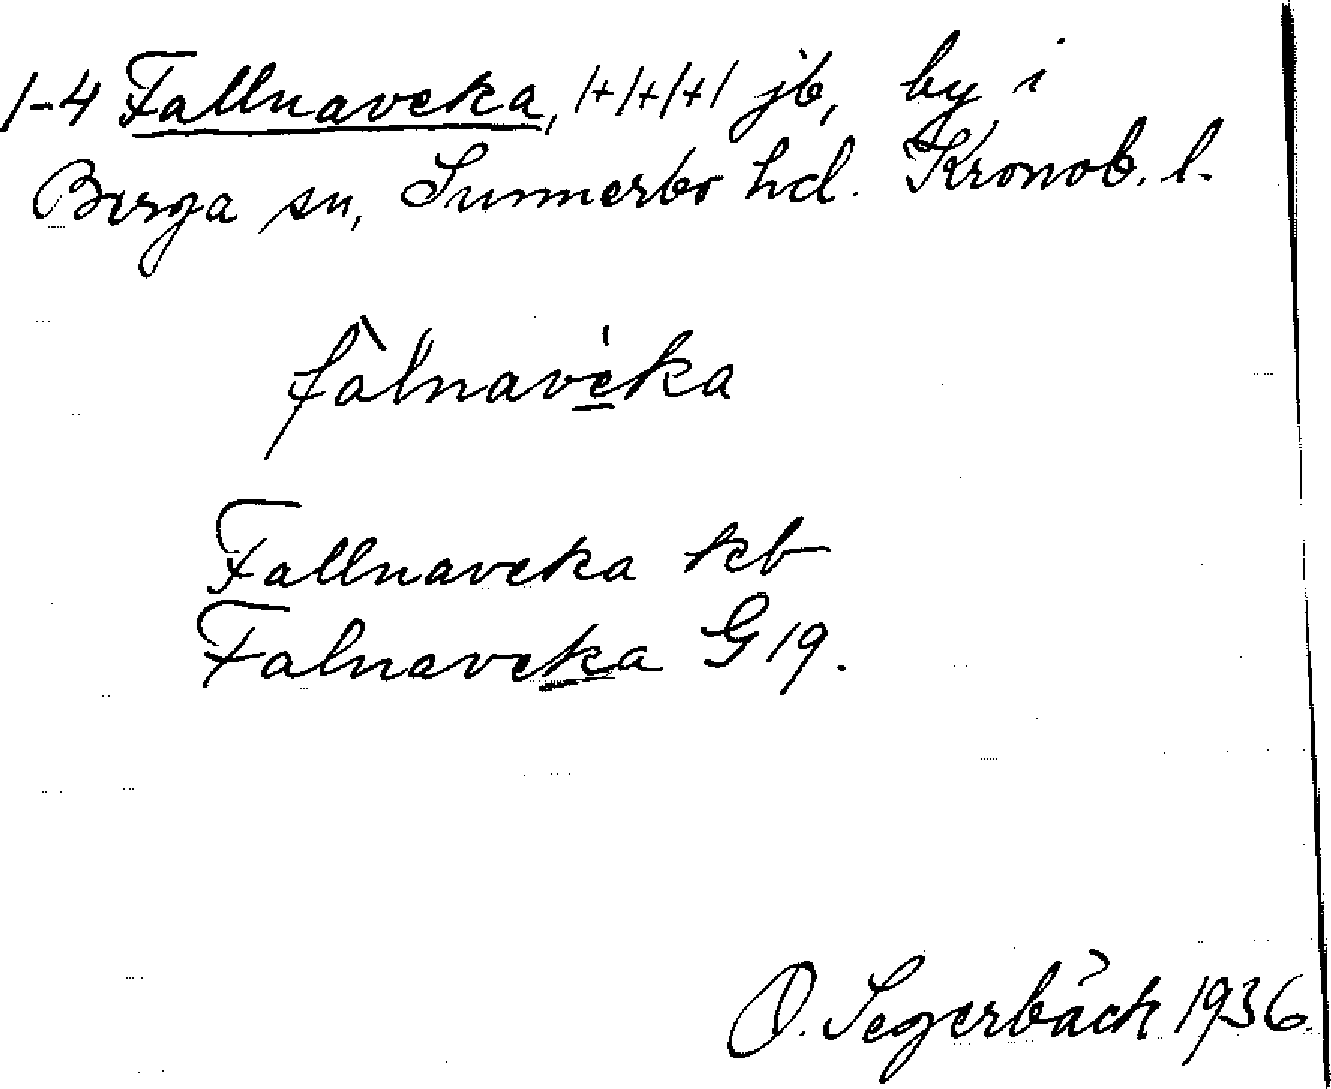 1-4 Fallnaveka, 1+1+1+1 jb, by i
Berga sn, Sunnerbo hd. Kronob. l.
fàlnavéka
Fallnaveka kb
Falnaveka G 19.
O. Segerbäck 1936.